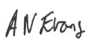 A N Evans